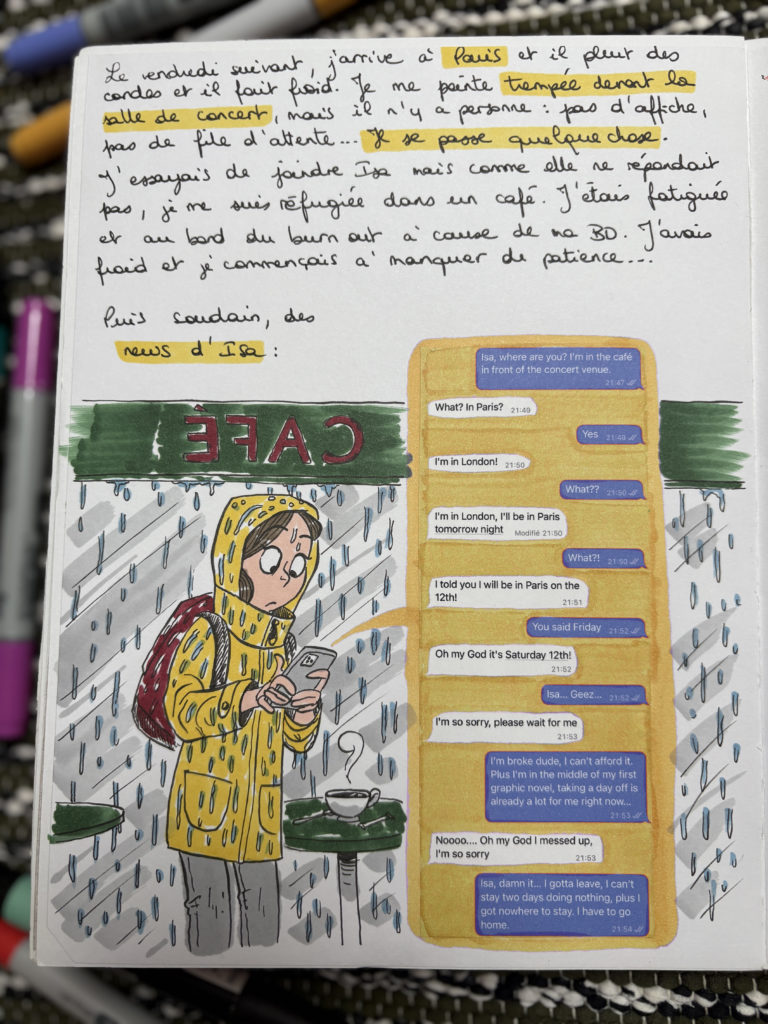 Le vendredi suivant, j'arrive à Paris et il pleut des
cordes et il fait froid. Je me pointe trempée devant la
salle de concert, mais il n'y a personne : pas d'affiche,
pas de file d'attente... Il se passe quelque chose.
J'essayais de joindre Isa mais comme elle ne répondait
pas, je me suis réfugiée dans un café. J'étais fatiguée
et au bord du burn out à cause de ma BD. J'avais
froid et je commençais à manquer de patience...
Puis soudain, des
news d'Isa :
CAFÉ
Isa, where are you? I'm in the café
in front of the concert venue.
21:47
What? In Paris? 21:49
Yes 21:49
I'm in London! 21:50
What?? 21:50
I'm in London, I'll be in Paris
tomorrow night Modifié 21:50
What?! 21:50
I told you I will be in Paris on the
12th!
21:51
You said Friday 21:52
Oh my God it's Saturday 12th!
21:52
Isa... Geez... 21:52
I'm so sorry, please wait for me
21:53
I'm broke dude, I can't afford it.
Plus I'm in the middle of my first
graphic novel, taking a day off is
already a lot for me right now...
21:53
Noooo.... Oh my God I messed up,
I'm so sorry 21:53
Isa, damn it... I gotta leave, I can't
stay two days doing nothing, plus I
got nowhere to stay. I have to go
home. 21:54